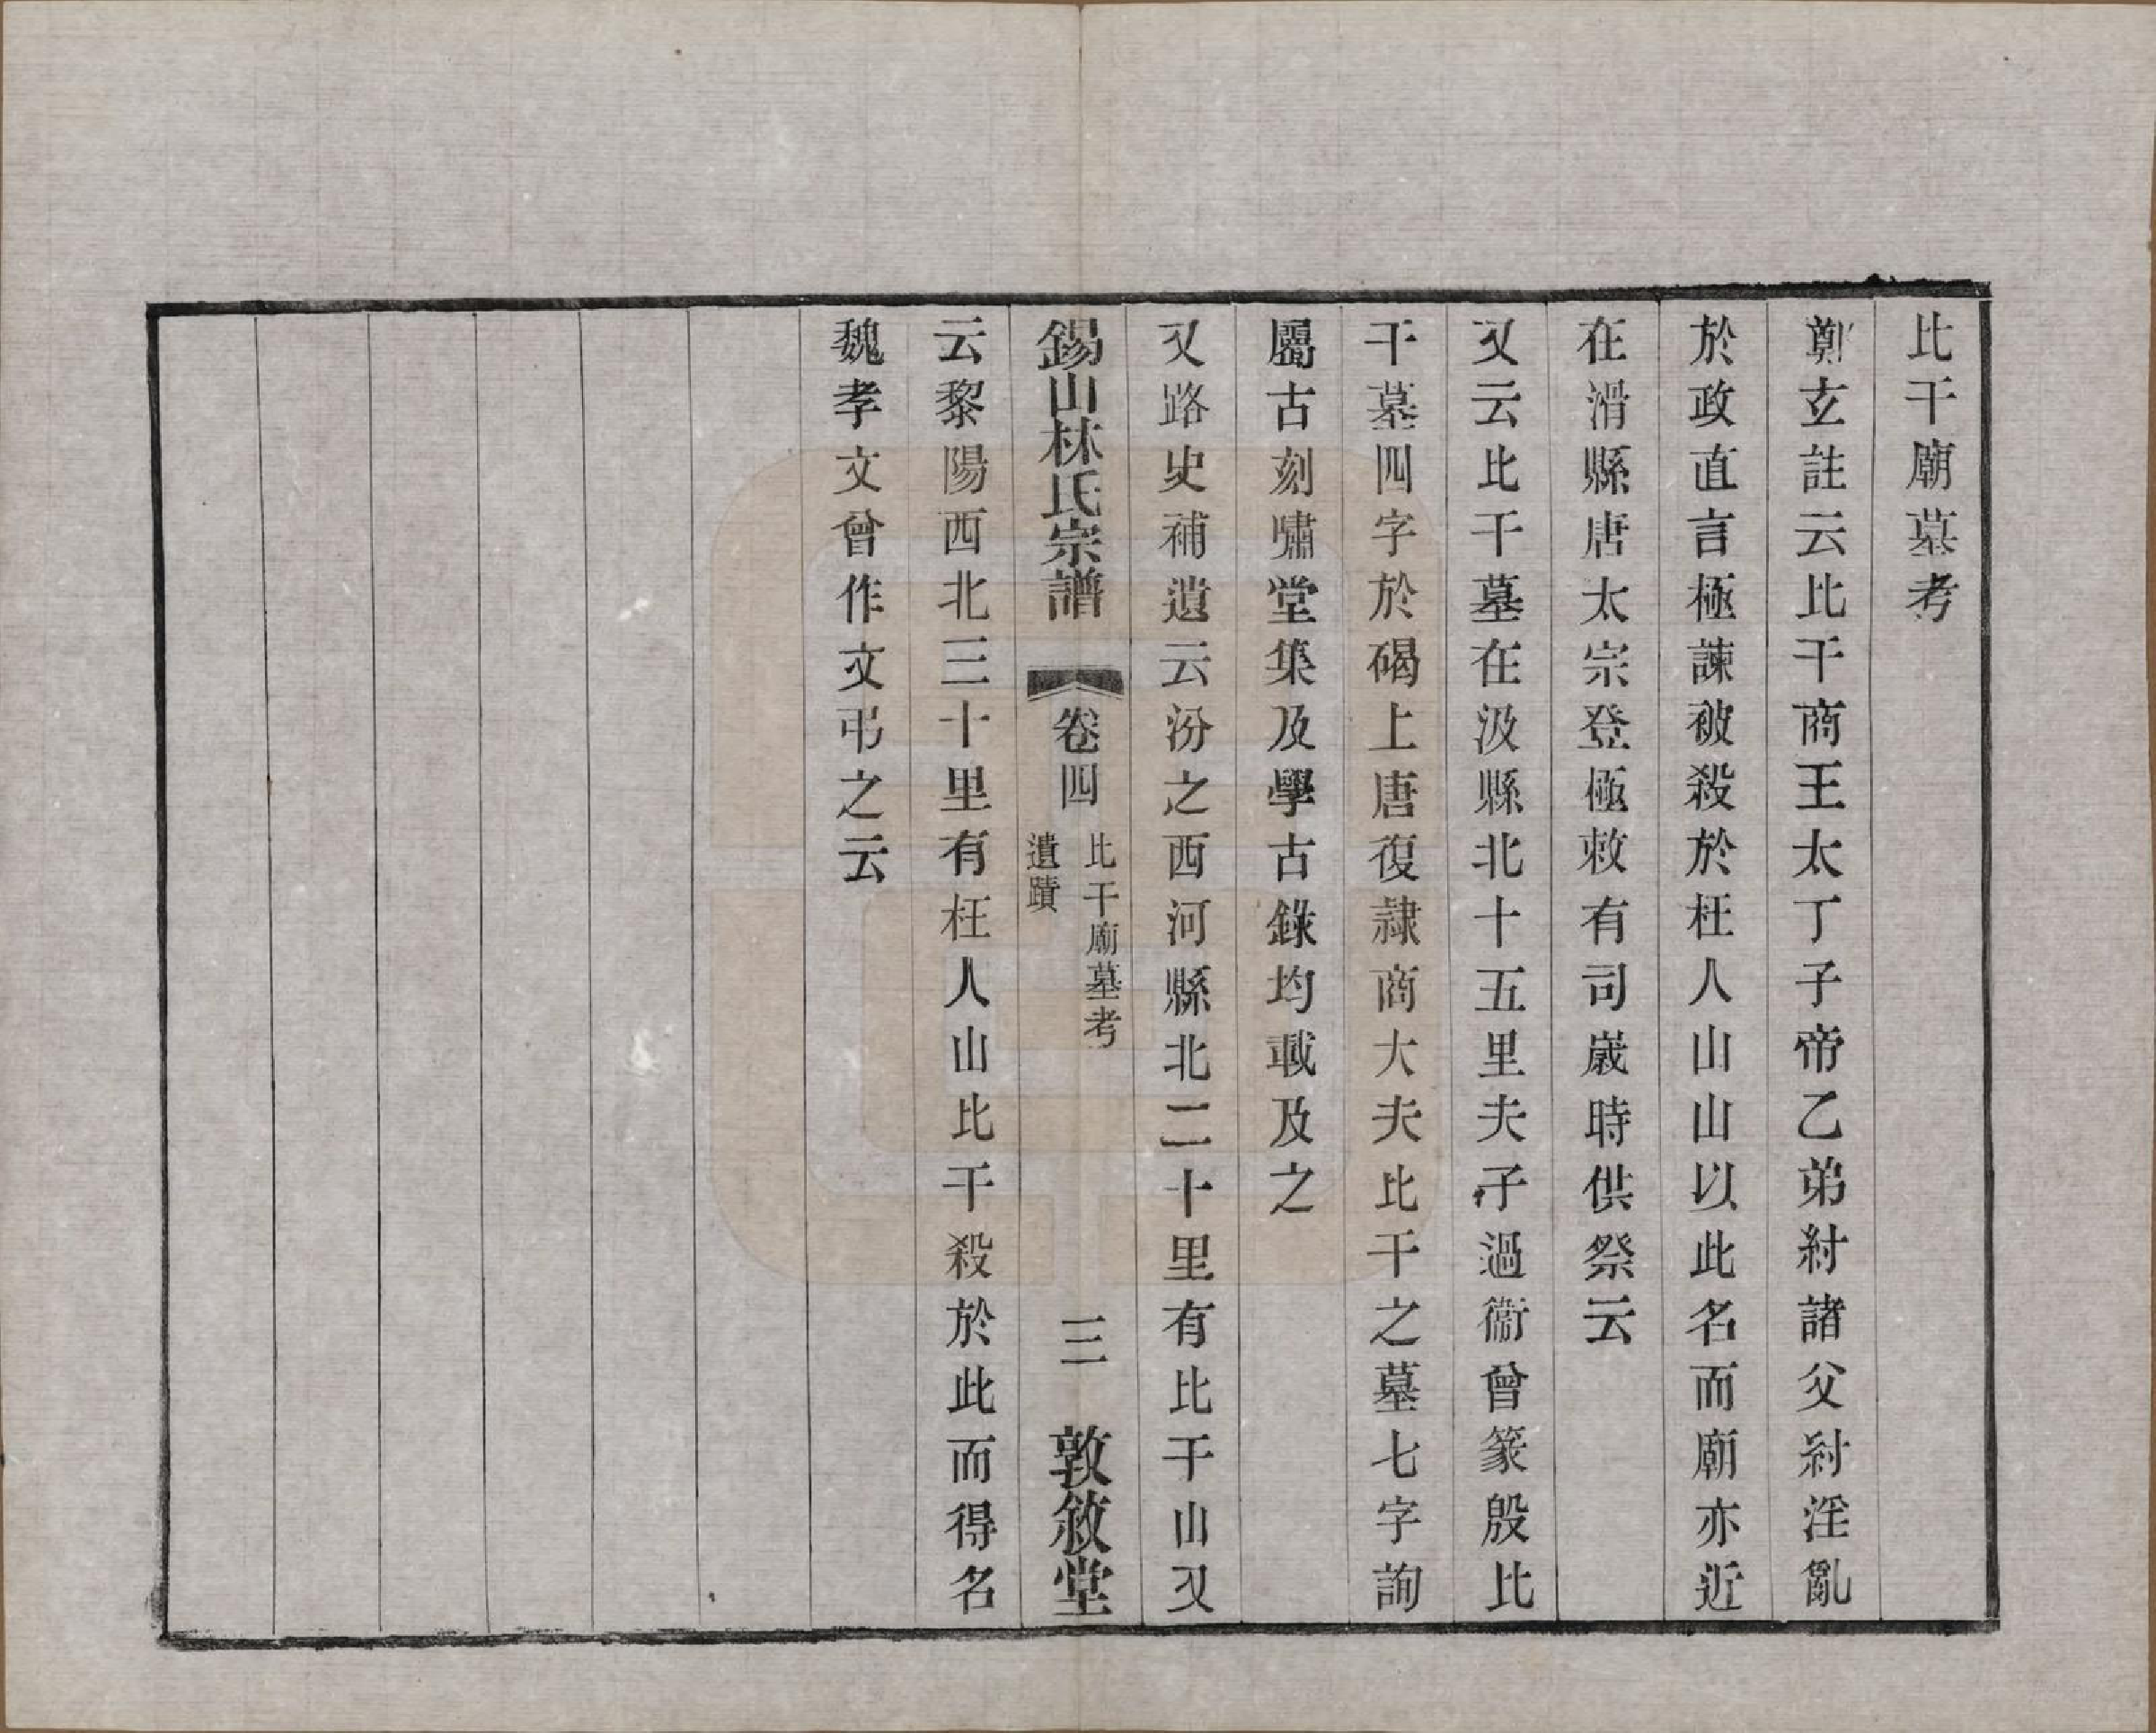 比干廟墓考
鄭玄註云比干商王太丁子帝乙弟紂諸父紂淫亂
於政直言極諫被殺於枉人山山以此名而廟亦近
在滑縣唐太宗登極敕有司歲時供祭云
又云比干墓在汲縣北十五里夫子過衞曾篆殷比
干墓四字於碣上唐復隷商大夫比干之墓七字詢
屬古刻嘯堂集及學古錄均載及之
又路史補遺云汾之西河縣北二十里有比干山又
錫山林氏宗譜 卷四 比干廟墓考 遺蹟 三 敦敘堂
云黎陽西北三十里有枉人山比干殺於此而得名
魏孝文曾作文弔之云